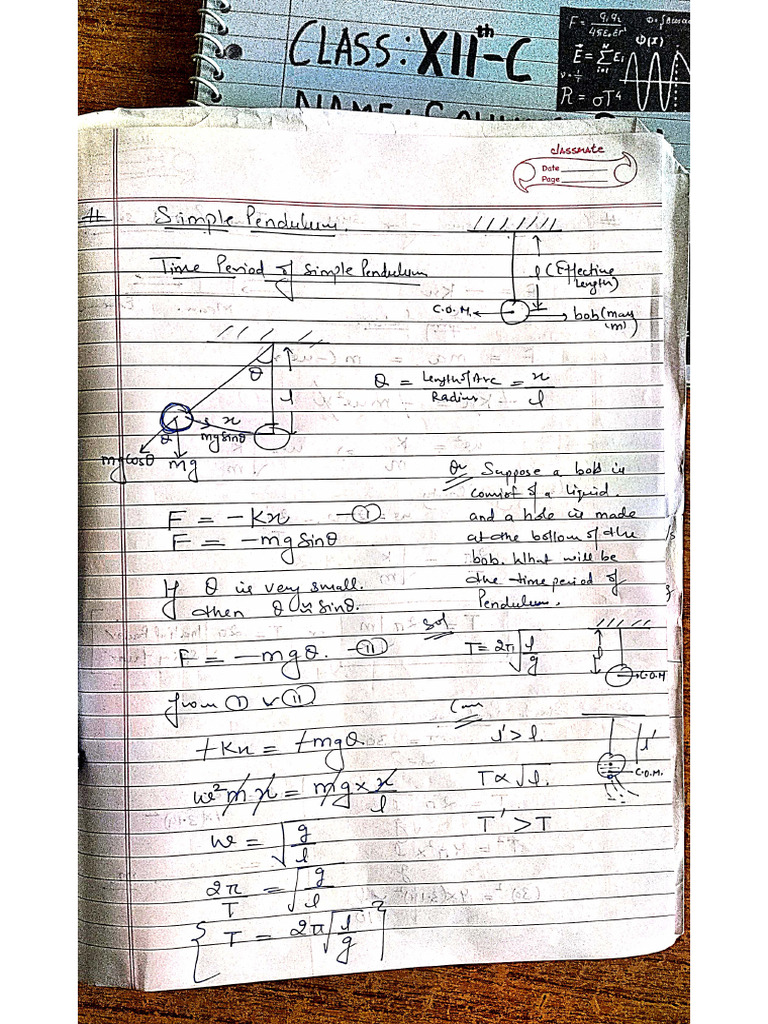 CLASS: XIIth-C
F = q1q2 / 4πε0εr²
E = Σ Ei
ψ(x)
R = σT⁴
classmate
Date
Page
# Simple Pendulum.
Time Period of Simple Pendulum
l (Effective Length)
C.O.M.
bob (mass m)
θ
l
x
mg sinθ
θ
mg cosθ
mg
θ = Length of Arc / Radius = x / l
F = -Kx —(I)
F = -mg Sinθ
If θ is very small.
then θ ≈ Sinθ.
F = -mgθ. —(II)
from (I) & (II)
+Kx = +mgθ
w²mx = mg × x / l
w = √(g/l)
2π / T = √(g/l)
{ T = 2π√(l/g) }
Qu Suppose a bob is
consist of a liquid.
and a hole is made
at the bottom of the
bob. What will be
the time period of
Pendulum.
Sol
T = 2π√(l/g)
l
C.O.M
l' > l.
T ∝ √l.
T' > T
l'
C.O.M.